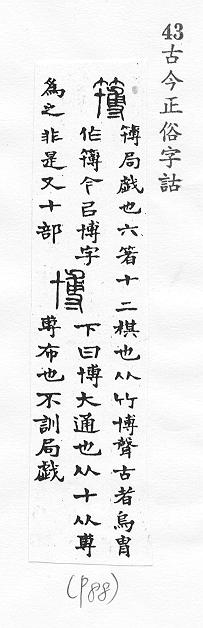 43
古今正俗字詁
簙
簙局戯也六箸十二棋也从竹博聲古者烏冑
作簙今㠯博字
為之非是又十部
博
下曰博大通也从十从尃
尃布也不訓局戯
(P88)